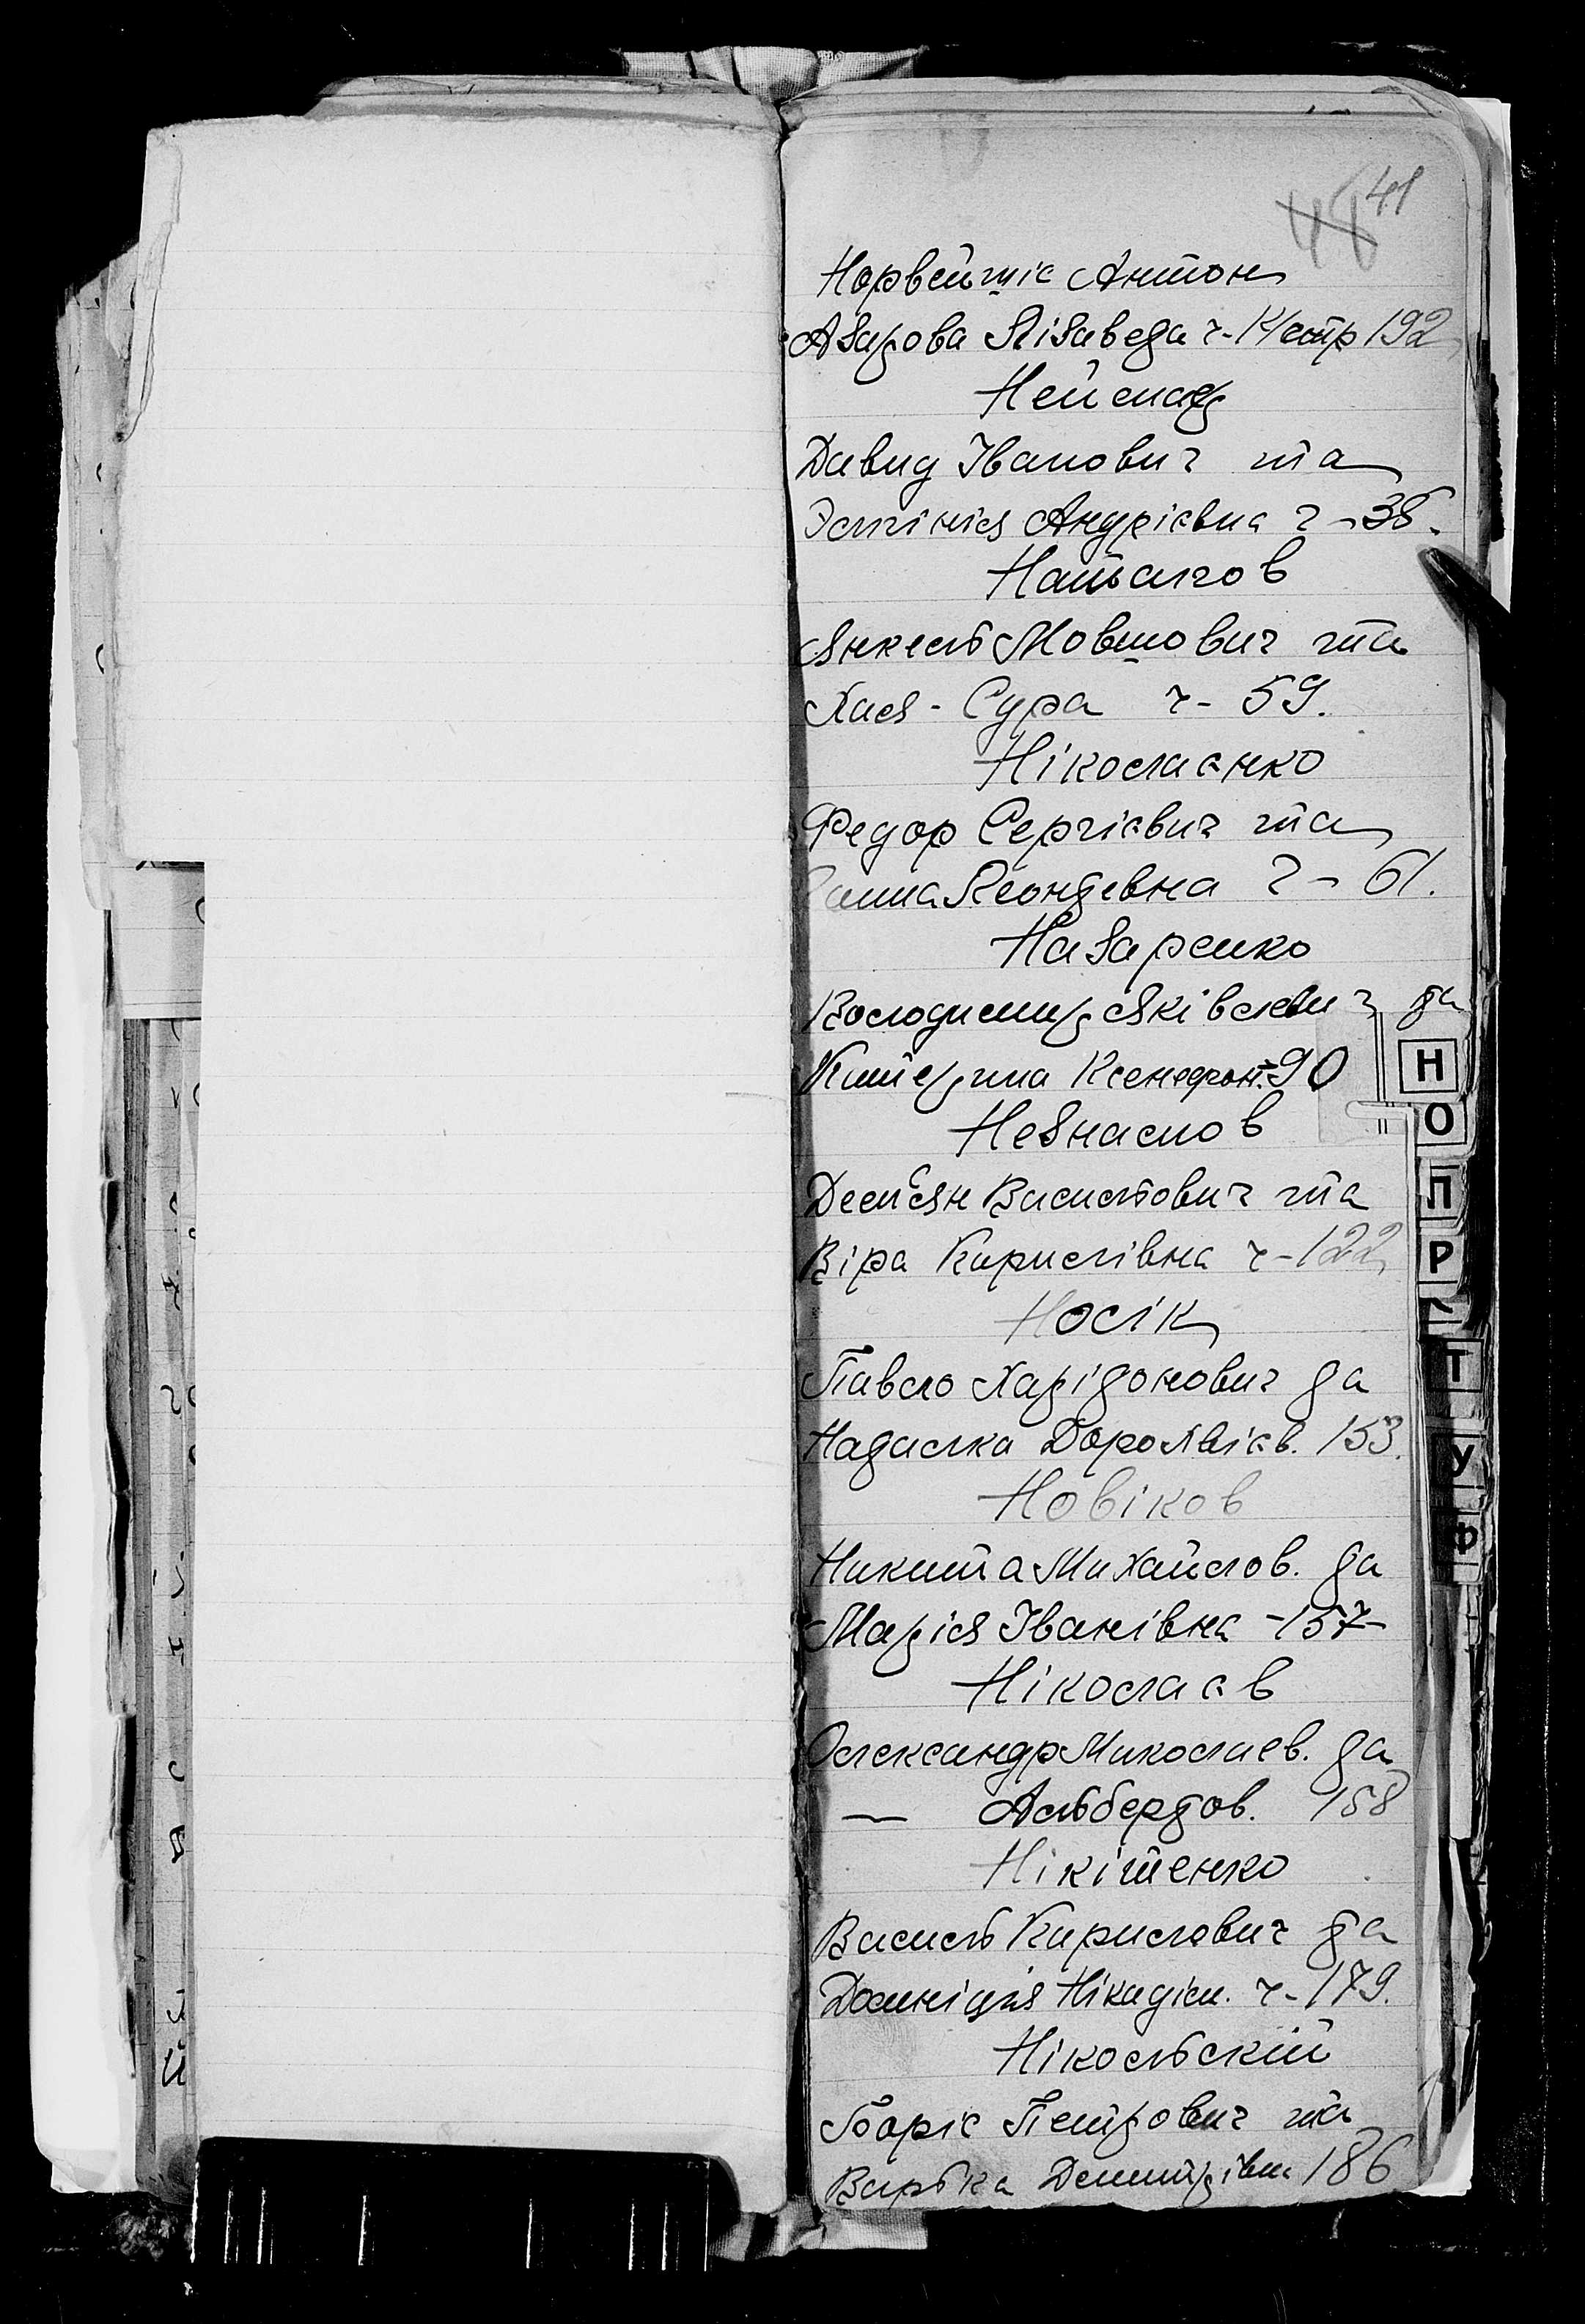 48 41
Норвейшіс Антон
Азарова Лізаведа ч-К/стр 192
Неймаг
Давид Іванович та
Эмінія Андрієвна ч-38.
Натанов
Янкель Мовшович та
Хая-Сура ч-59.
Ніколаєнко
Федор Сергієвич та
Ганна Леондевна ч-61.
Назаренко
Володимир Яківлевич да
Катерина Ксенофон. 90
Незнамов
Демєян Васильович та
Віра Кирилівна ч-122
Носік
Павло Харідонович да
Надалка Дорохвієв. 153.
Новіков
Никита Михайлов. да
Марія Іванівна -157-
Ніколаєв
Олександр Миколаев. да
— Альбердов. 158
Нікітенко
Василь Кирилович да
Домніція Нікидім. ч-179.
Нікольскій
Боріс Петрович та
Варька Демитрівна 186
Н
О
П
Р
Т
У
Ф